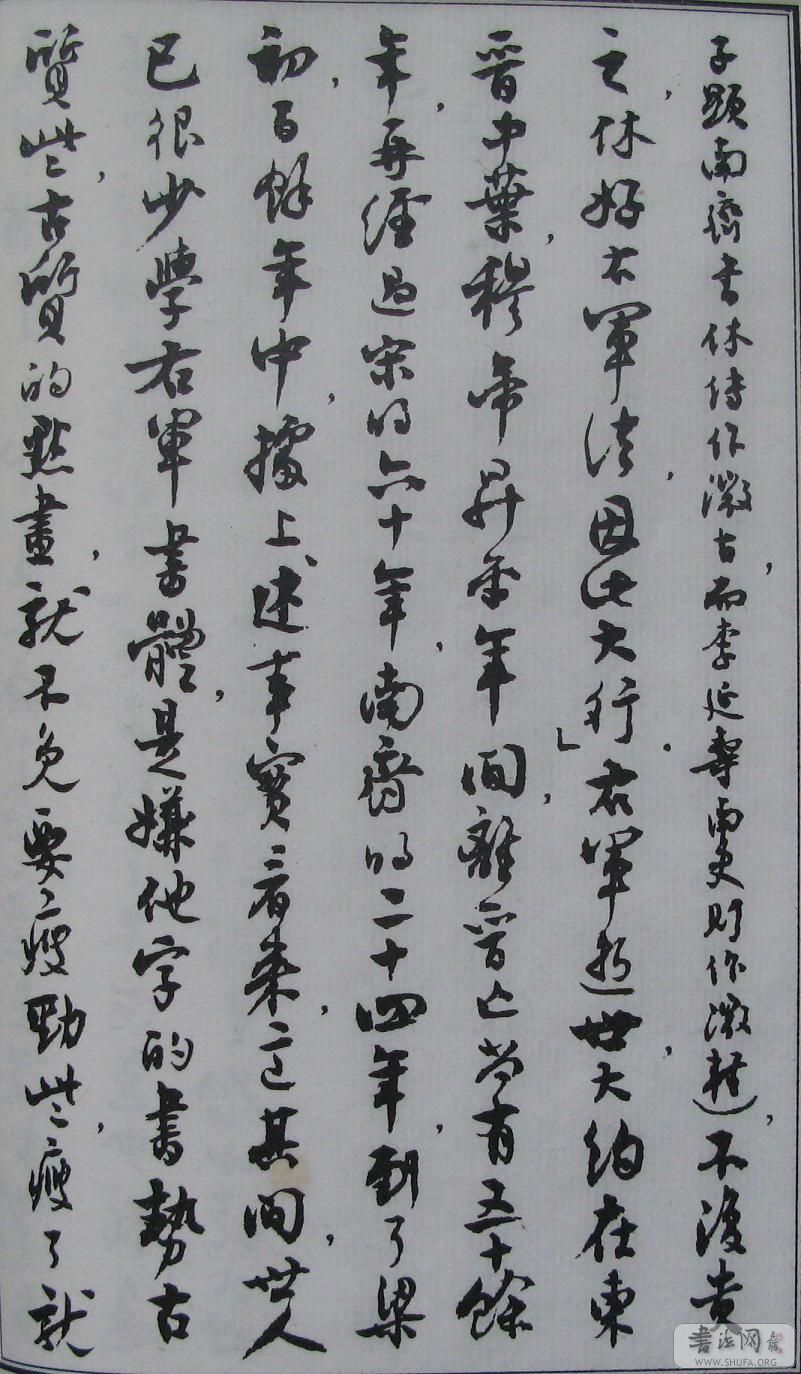 子顯南齊書休傳作微古，而李延壽南史則作微輕），不復貴
之，休好右軍法，因此大行。」右軍逝世，大約在東
晉中葉，穆帝昇平年間，離晉亡尚有五十餘
年，再經過宋的六十年，南齊的二十四年，到了梁
初，百餘年中，據上述事實看來，這其間，世人
已很少學右軍書體，是嫌他字的書勢古
質些，古質的點畫，就不免要瘦勁些，瘦了就
書法网
WWW.SHUFA.ORG